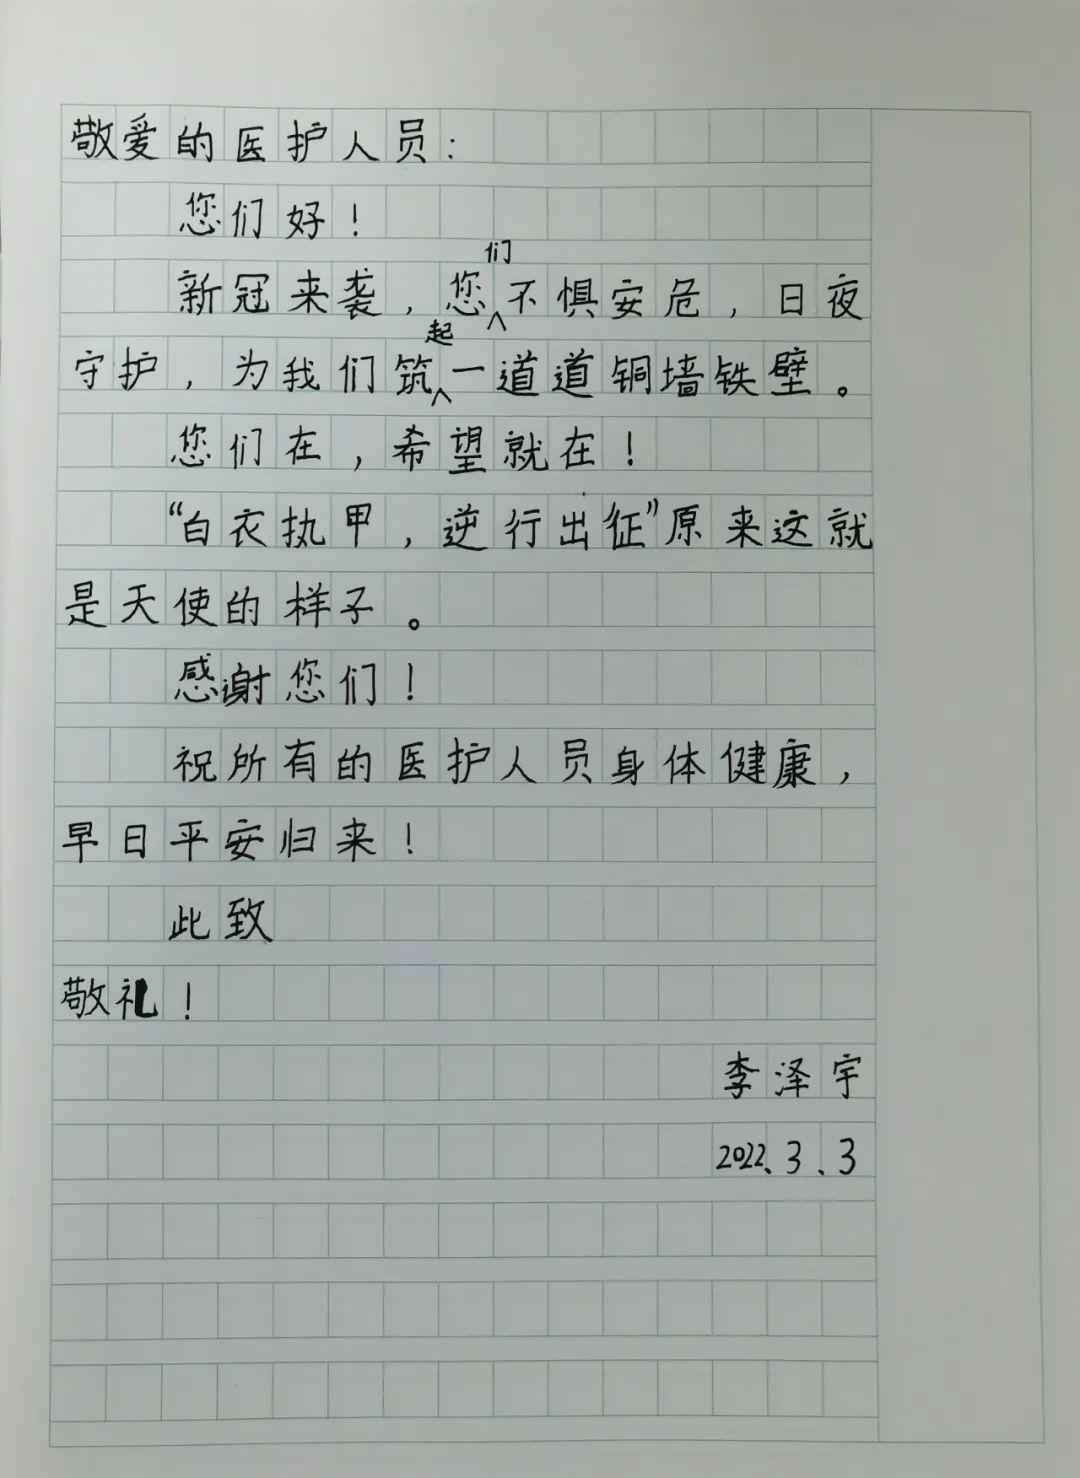 敬爱的医护人员：
您们好！
新冠来袭，您们不惧安危，日夜
守护，为我们筑起一道道铜墙铁壁。
您们在，希望就在！
“白衣执甲，逆行出征”原来这就
是天使的样子。
感谢您们！
祝所有的医护人员身体健康，
早日平安归来！
此致
敬礼！
李泽宇
2022.3.3